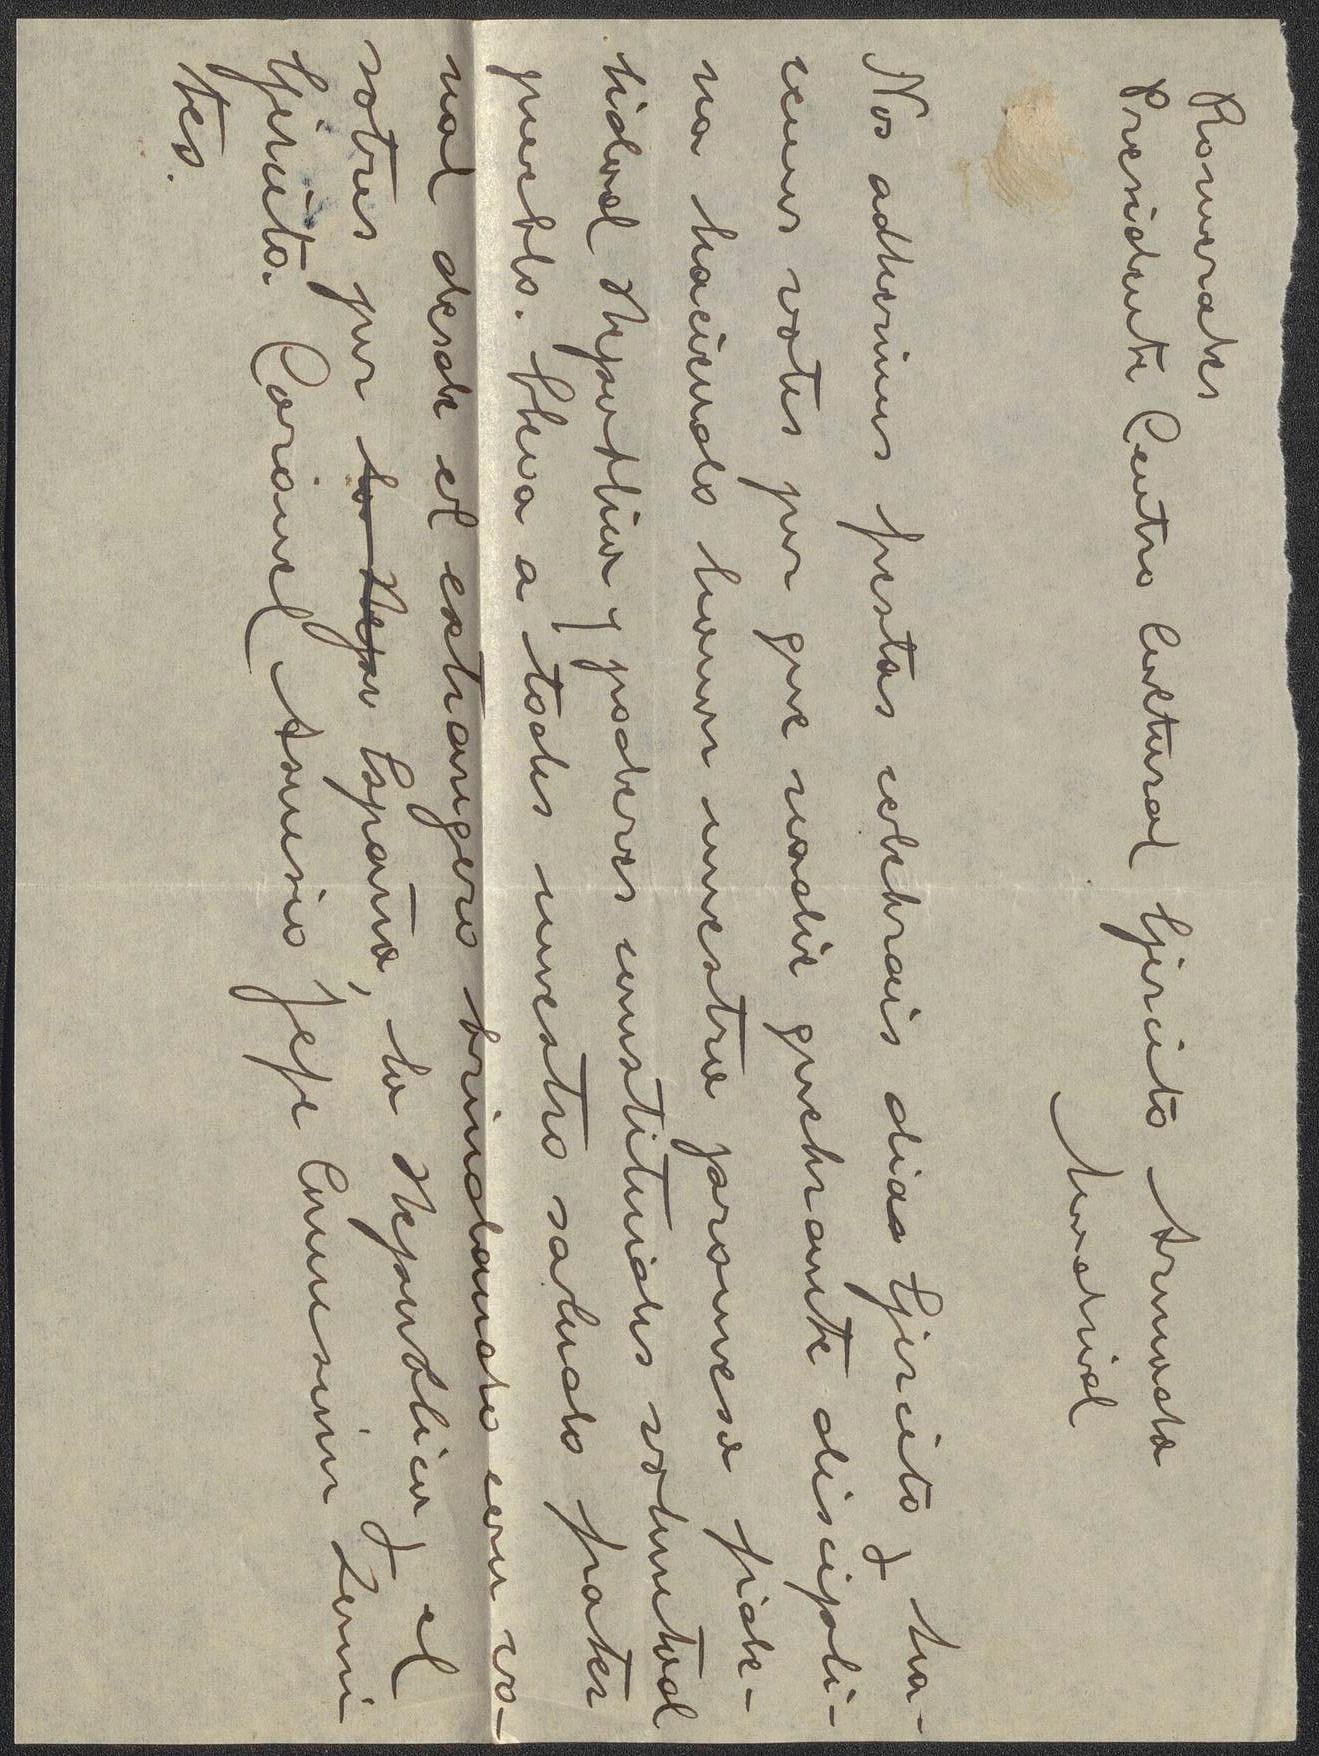 Romerales
Presidente Centro Cultural Ejercito Armada
Madrid
Nos adherimos fiestas celebrais dias Ejercito y ha-
cemos votos por que nadie quebrante discipli-
na haciendo honor nuestra promesa fide-
lidad Republica y poderes constituidos voluntad
pueblo. Lleva a todos nuestro saludo frater
nal desde el extrangero brindando con vo-
sotros por la Repu España, la Republica y el
Ejercito. Coronel Asensio Jefe Comision Limi
tes.